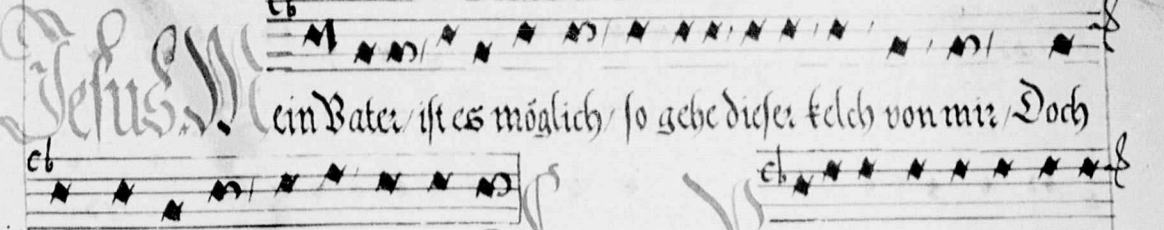 Jesus. Mein Vater/ ist es möglich/ so gehe dieser kelch von mir/ Doch